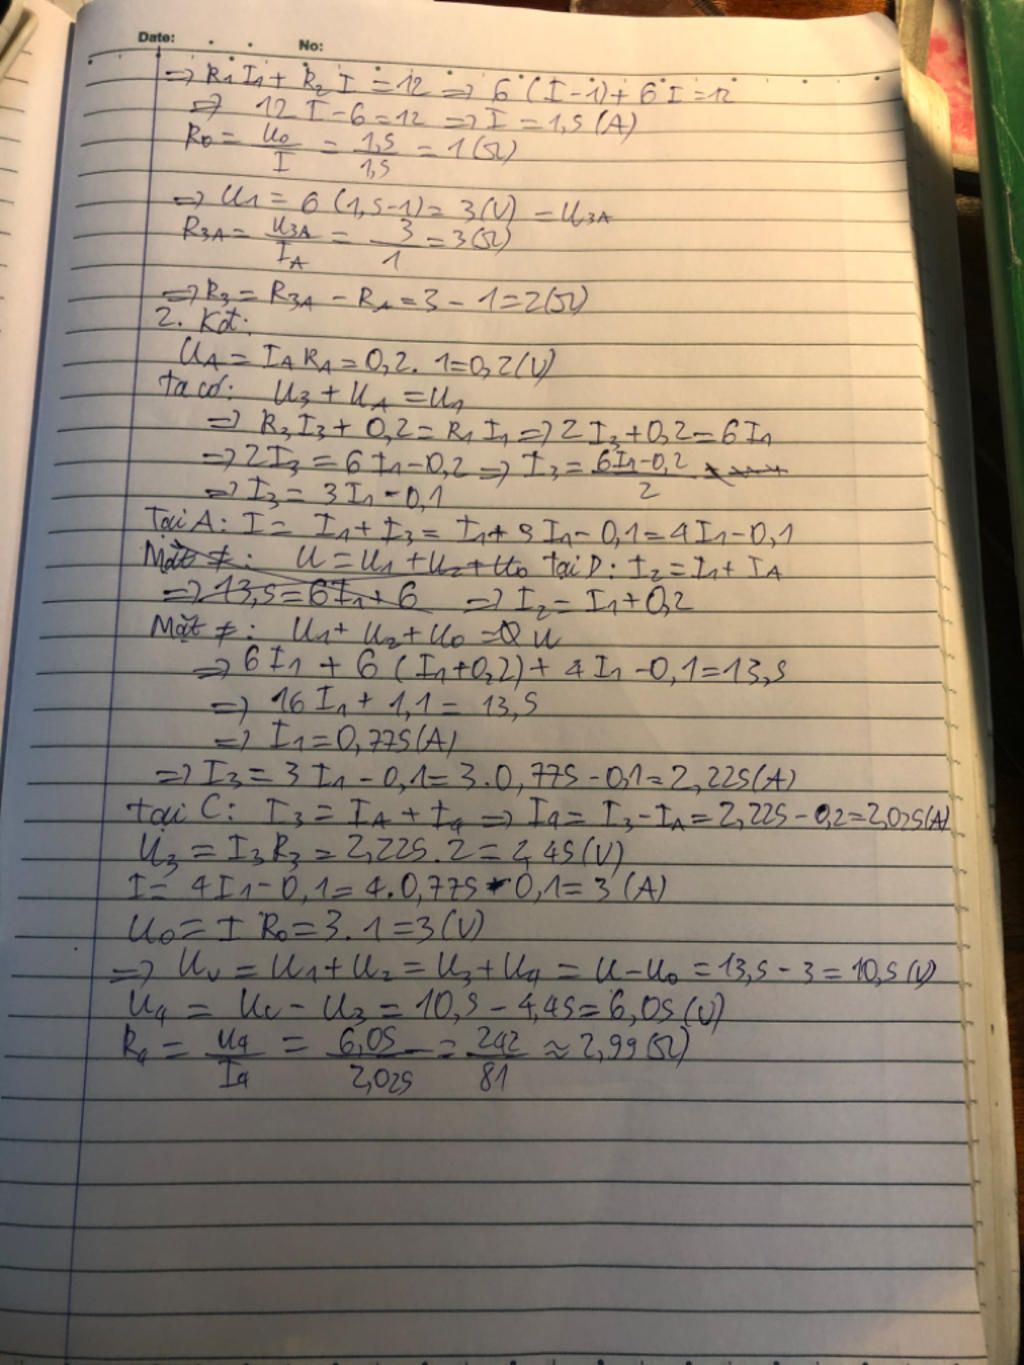 Date: No:
=> R1 I1 + R2 I = 12 => 6 (I - 1) + 6 I = 12
=> 12 I - 6 = 12 => I = 1,5 (A)
R0 = U0/I = 1,5/1,5 = 1 (Ω)
=> U1 = 6 (1,5 - 1) = 3 (V) = U3A
R3A = U3A/IA = 3/1 = 3 (Ω)
=> R3 = R3A - RA = 3 - 1 = 2 (Ω)
2. Kđt:
UA = IA RA = 0,2 . 1 = 0,2 (V)
Ta có: U3 + UA = U1
=> R3 I3 + 0,2 = R1 I1 => 2 I3 + 0,2 = 6 I1
=> 2 I3 = 6 I1 - 0,2 => I3 = 6I1 - 0,2/2
=> I3 = 3 I1 - 0,1
Tại A: I = I1 + I3 = I1 + 3 I1 - 0,1 = 4 I1 - 0,1
Mặt ≠: U = U1 + U2 + U0 Tại D: I2 = I1 + IA
=> 13,5 = 6 I1 + 6 => I2 = I1 + 0,2
Mặt ≠: U1 + U2 + U0 = U
=> 6 I1 + 6 (I1 + 0,2) + 4 I1 - 0,1 = 13,5
=> 16 I1 + 1,1 = 13,5
=> I1 = 0,775 (A)
=> I3 = 3 I1 - 0,1 = 3 . 0,775 - 0,1 = 2,225 (A)
Tại C: I3 = IA + I4 => I4 = I3 - IA = 2,225 - 0,2 = 2,025 (A)
U3 = I3 R3 = 2,225 . 2 = 4,45 (V)
I = 4 I1 - 0,1 = 4 . 0,775 - 0,1 = 3 (A)
U0 = I R0 = 3 . 1 = 3 (V)
=> Uv = U1 + U2 = U3 + U4 = U - U0 = 13,5 - 3 = 10,5 (V)
U4 = Uv - U3 = 10,5 - 4,45 = 6,05 (V)
R4 = U4/I4 = 6,05/2,025 = 242/81 ≈ 2,99 (Ω)